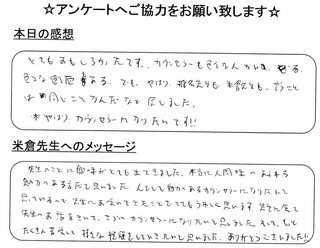 ☆アンケートへご協力をお願い致します☆
本日の感想
とてもおもしろかったです。カウンセラーも色々な人がいて、
色々な
は同じことなんだなと感じました。
やはりカウンセラーになりたいです!!
米倉先生へのメッセージ
先生のことに興味がとてもでてきました。本当に人間味のあふれる
魅力のある方だと思いました。人として魅力のあるカウンセラーになりたいと
思っているので、先生にお会いできたことをとてもうれしく思います。先生に会って
先生のお話をきいて、さらにカウンセラーになりたいと思いました。そして、もっと
たくさん して 様々な経験をしていきたいと思いました。ありがとうございました!!